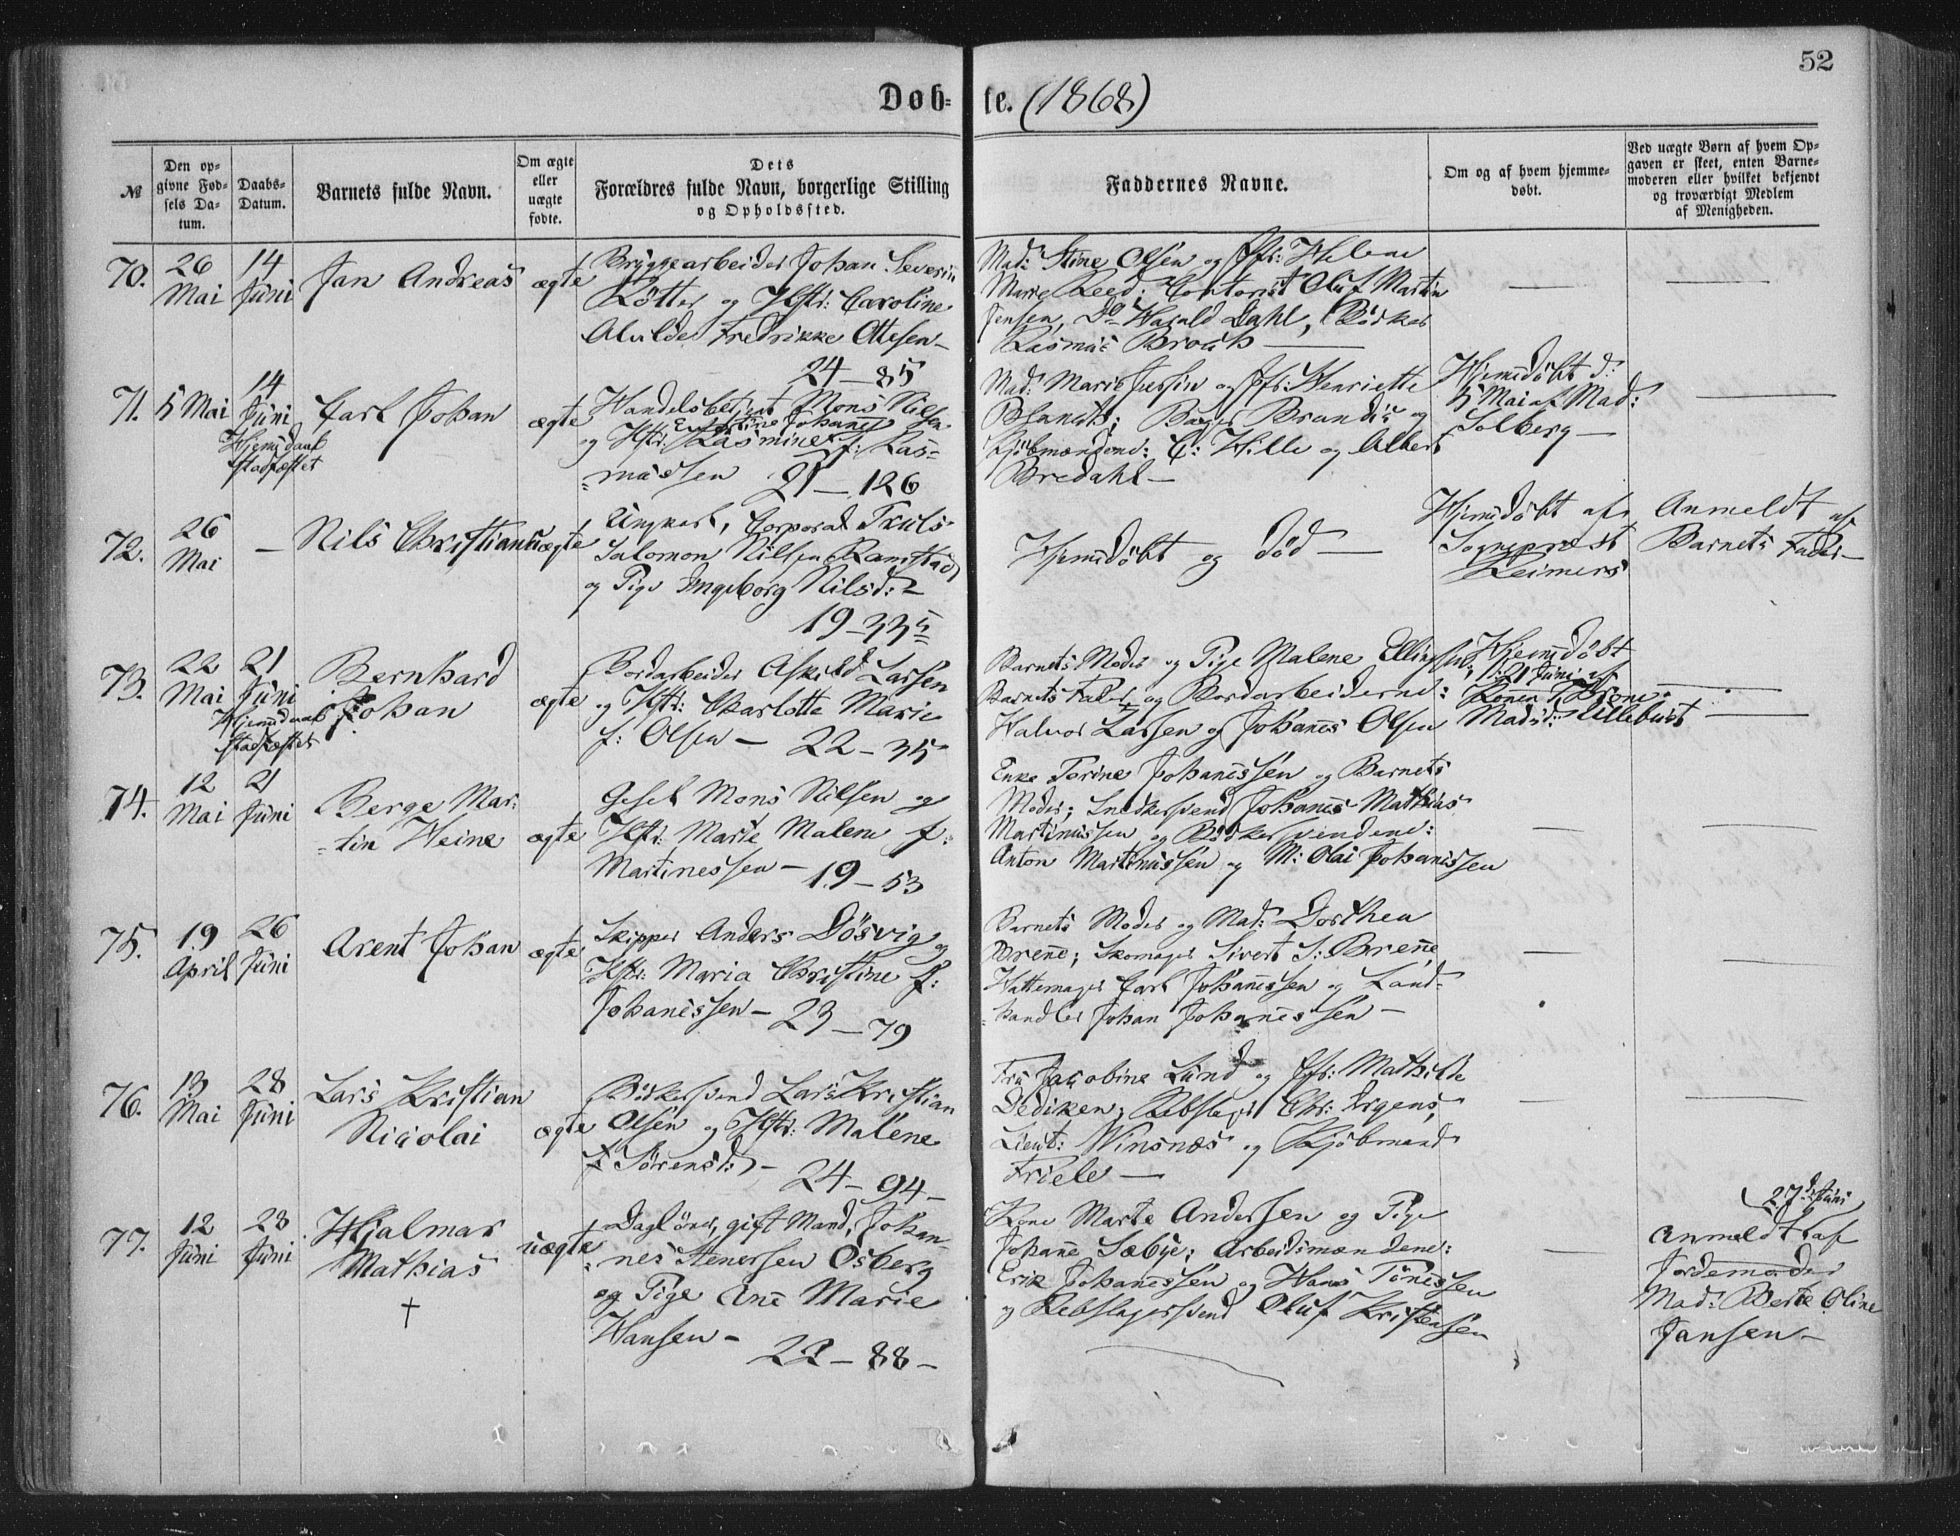 52
Døb- te. (1868)
№
Den op-
givne Fød-
sels Da-
tum.
Daabs-
Datum.
Barnets fulde Navn.
Om ægte
eller
uægte
fødte.
Dets
Forældres fulde Navn, borgerlige Stilling
og Opholdssted.
Faddernes Navne.
Om og af hvem hjemme-
døbt.
Ved uægte Børn af hvem Op-
gaven er skeet, enten Barne-
moderen eller hvilket bekjendt
og troværdigt Medlem
af Menigheden.
70.
26
Mai
14
Juni
Jan Andreas
ægte
Bryggearbeider Johan Severin
Rötter og Hstr: Caroline
Alvilde Fredrikke Ottesen
24 – 85
Mad: Stine Olsen og Jfr: Helene
Marie Reed; Contorist Oluf Martin
Jensen, Do Harald Dahl, Bødker
Rasmus Broch
71.
5 Mai
14
Juni
Hjemdaab
stadfæstet
Carl Johan
ægte
Handelsbetjent Mons Nilsen
og Hstr: Rasmine f: Ras-
mussen 21 – 126
Mad: Marie og Jfr: Henriette
Brandt; Bager Brandt og
Kjøbmændene: C: Hille og Albert
Bredahl
Hjemdøbt d:
5 Mai af Mad:
Solberg
72.
26
Mai
–
Nils Christian
uægte
Ungkarl, Corporal Truls
Salomon Nilsen Ramstad
og Pige Ingeborg Nilsd:
19 – 335
Hjemdøbt og død
Hjemdøbt af
Sogneprest
Reimers
Anmeldt af
Barnets Fader
73.
22
Mai
21
Juni
Hjemdaab
stadfæstet
Bernhard
Johan
ægte
Bordarbeider Askild Larsen
og Hstr: Charlotte Marie
f: Olsen – 22 – 35
Barnets Moder og Pige Malene Ellingsen;
Barnets Fader og Bordarbeiderne:
Halvor Larsen og Johannes Olsen
Hjemdøbt
d: 21 Juni af
74.
12
Mai
21
Juni
Berge Mar-
tin Heine
ægte
Gesel Mons Nilsen og
Hstr: Marte Malene f:
Martinessen – 19 – 53
Enke Torine Johannessen og Barnets
Moder; Snedkersvend Johannes Mathias
Martinussen og Bødkersvendene:
Anton Martinussen og M: Olai Johannessen
75.
19
April
26
Juni
Arent Johan
ægte
Skipper Anders Døsvig og
Hstr: Maria Christine f:
Johannessen – 23 – 79
Barnets Moder og Mad: Dorthea
Brenne; Skomager Sivert S: Brenne,
Hattemager Carl Johannessen og Land-
handler Johan Johannessen
76.
13
Mai
28
Juni
Lars Kristian
Nicolai
ægte
Bødkersvend Lars Kristian
Olsen og Hstr: Malene
f Sörensd: – 24 – 94 –
Fru Jacobine Lund og Jfr: Mathilde
Dediken; Rebslager Chr: Irgens,
Lieut: Winsnæs og Kjøbmand
Friele
77.
12
Juni
28
Juni
Hjalmar
Mathias
†
uægte
Daglöner, gift Mand, Johan-
nes Stenersen Osberg
og Pige Ane Marie
Hansen –
22 – 88 –
Kone Marte Andersen og Pige
Johanne Sæbye; Arbeidsmændene:
Erik Johannessen og Hans Tönessen
og Rebslagersvend Oluf Kristensen
27de Juni
Anmeldt af
Jordemoder
Mad: Berte Oline
Jansen